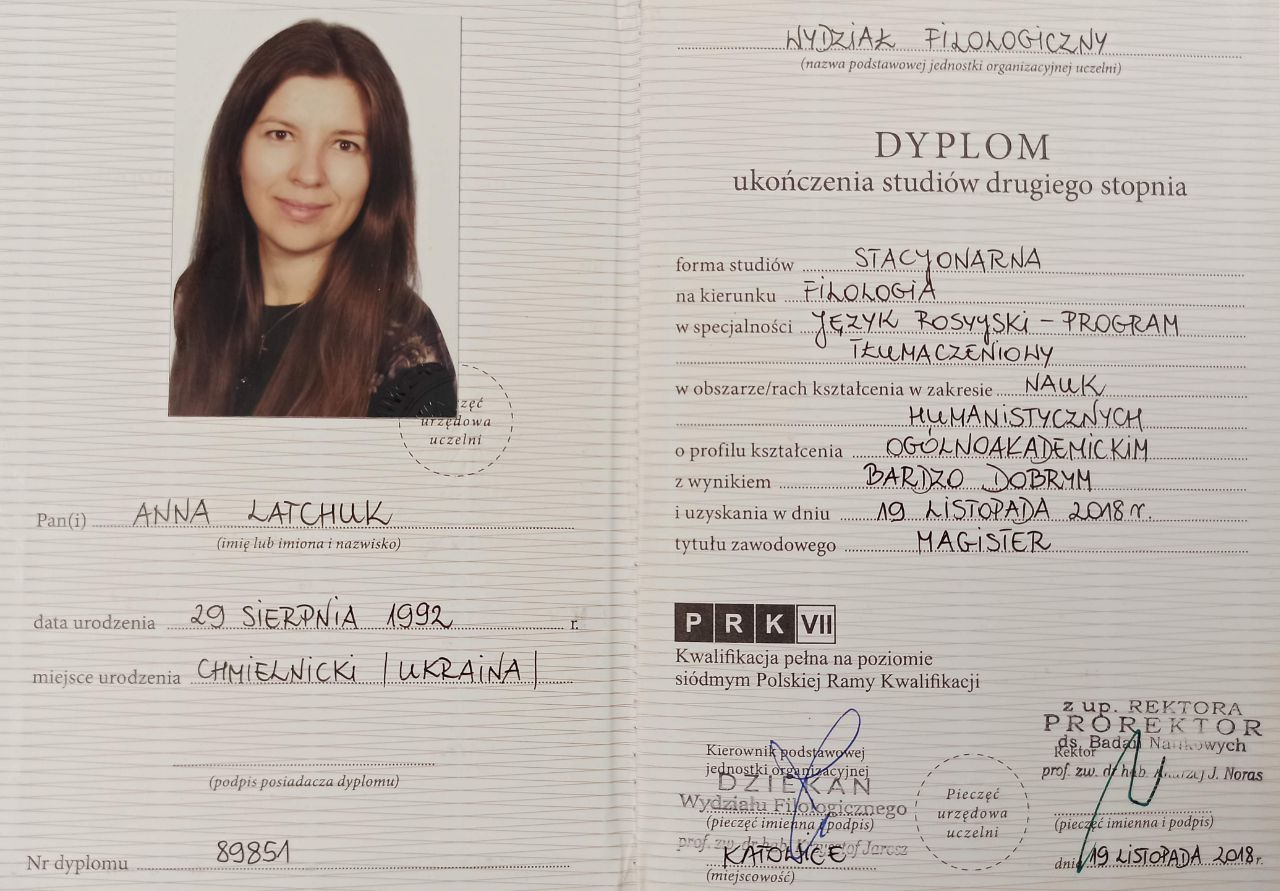 zęć
urzędowa
uczelni
Pan(i) ANNA LATCHUK
(imię lub imiona i nazwisko)
data urodzenia 29 SIERPNIA 1992 r.
miejsce urodzenia CHMIELNICKI /UKRAINA/
(podpis posiadacza dyplomu)
Nr dyplomu 89851
WYDZIAŁ FILOLOGICZNY
(nazwa podstawowej jednostki organizacyjnej uczelni)
DYPLOM
ukończenia studiów drugiego stopnia
forma studiów STACJONARNA
na kierunku FILOLOGIA
w specjalności JĘZYK ROSYJSKI – PROGRAM
TŁUMACZENIOWY
w obszarze/rach kształcenia w zakresie NAUK
HUMANISTYCZNYCH
o profilu kształcenia OGÓLNOAKADEMICKIM
z wynikiem BARDZO DOBRYM
i uzyskania w dniu 19 LISTOPADA 2018 r.
tytułu zawodowego MAGISTER
PRK VII
Kwalifikacja pełna na poziomie
siódmym Polskiej Ramy Kwalifikacji
Kierownik podstawowej
jednostki organizacyjnej
DZIEKAN
Wydziału Filologicznego
(pieczęć imienna i podpis)
prof. zw. dr hab. Krzysztof Jarosz
KATOWICE
(miejscowość)
Pieczęć
urzędowa
uczelni
z up. REKTORA
PROREKTOR
ds. Badań Naukowych
Rektor
prof. zw. dr hab. Andrzej J. Noras
(pieczęć imienna i podpis)
dnia 19 LISTOPADA 2018 r.